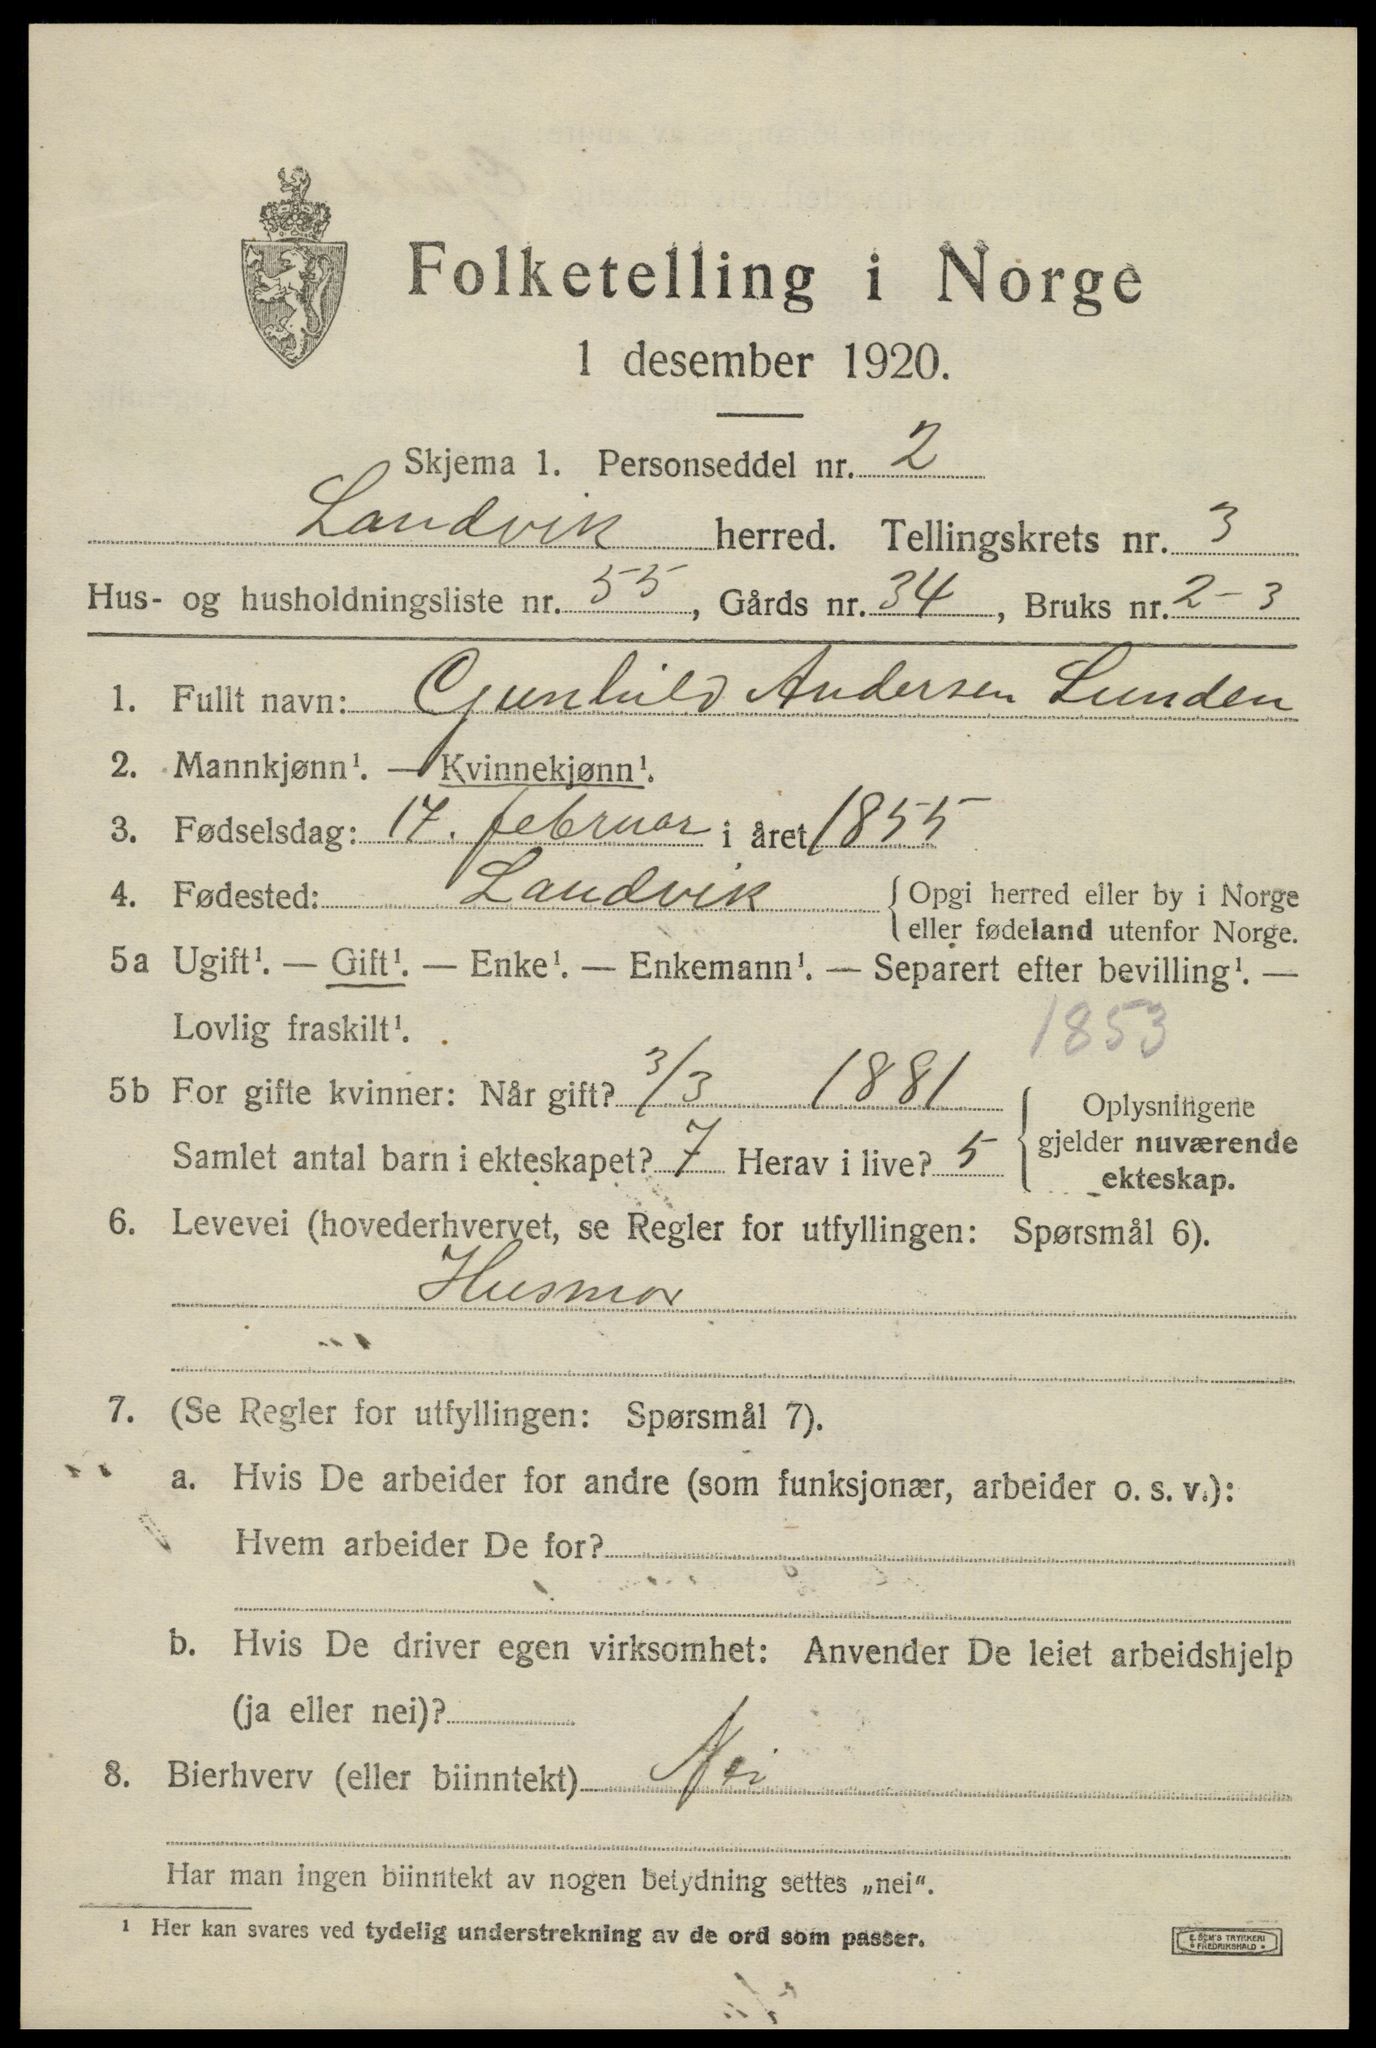 Folketelling i Norge
1 desember 1920.
Skjema 1. Personseddel nr. 2
Landvik herred. Tellingskrets nr. 3
Hus- og husholdningsliste nr. 55, Gårds nr. 34, Bruks nr. 2-3
1. Fullt navn: Gunhild Andersen Lunden
2. Mannkjønn¹. — Kvinnekjønn¹.
3. Fødselsdag: 17. februar i året 1855
4. Fødested: Landvik { Opgi herred eller by i Norge
eller fødeland utenfor Norge.
5a Ugift¹. — Gift¹. — Enke¹. — Enkemann¹. — Separert efter bevilling¹. —
Lovlig fraskilt¹.
1853
5b For gifte kvinner: Når gift? 3/3 1881
Samlet antal barn i ekteskapet? 7 Herav i live? 5
{ Oplysningene
gjelder nuværende
ekteskap.
6. Levevei (hovederhvervet, se Regler for utfyllingen: Spørsmål 6).
Husmor
7. (Se Regler for utfyllingen: Spørsmål 7).
a. Hvis De arbeider for andre (som funksjonær, arbeider o. s. v.):
Hvem arbeider De for?
b. Hvis De driver egen virksomhet: Anvender De leiet arbeidshjelp
(ja eller nei)?
8. Bierhverv (eller biinntekt) Nei
Har man ingen biinntekt av nogen betydning settes „nei“.
¹ Her kan svares ved tydelig understrekning av de ord som passer.
E. SEM'S TRYKKERI
* FREDRIKSHALD *